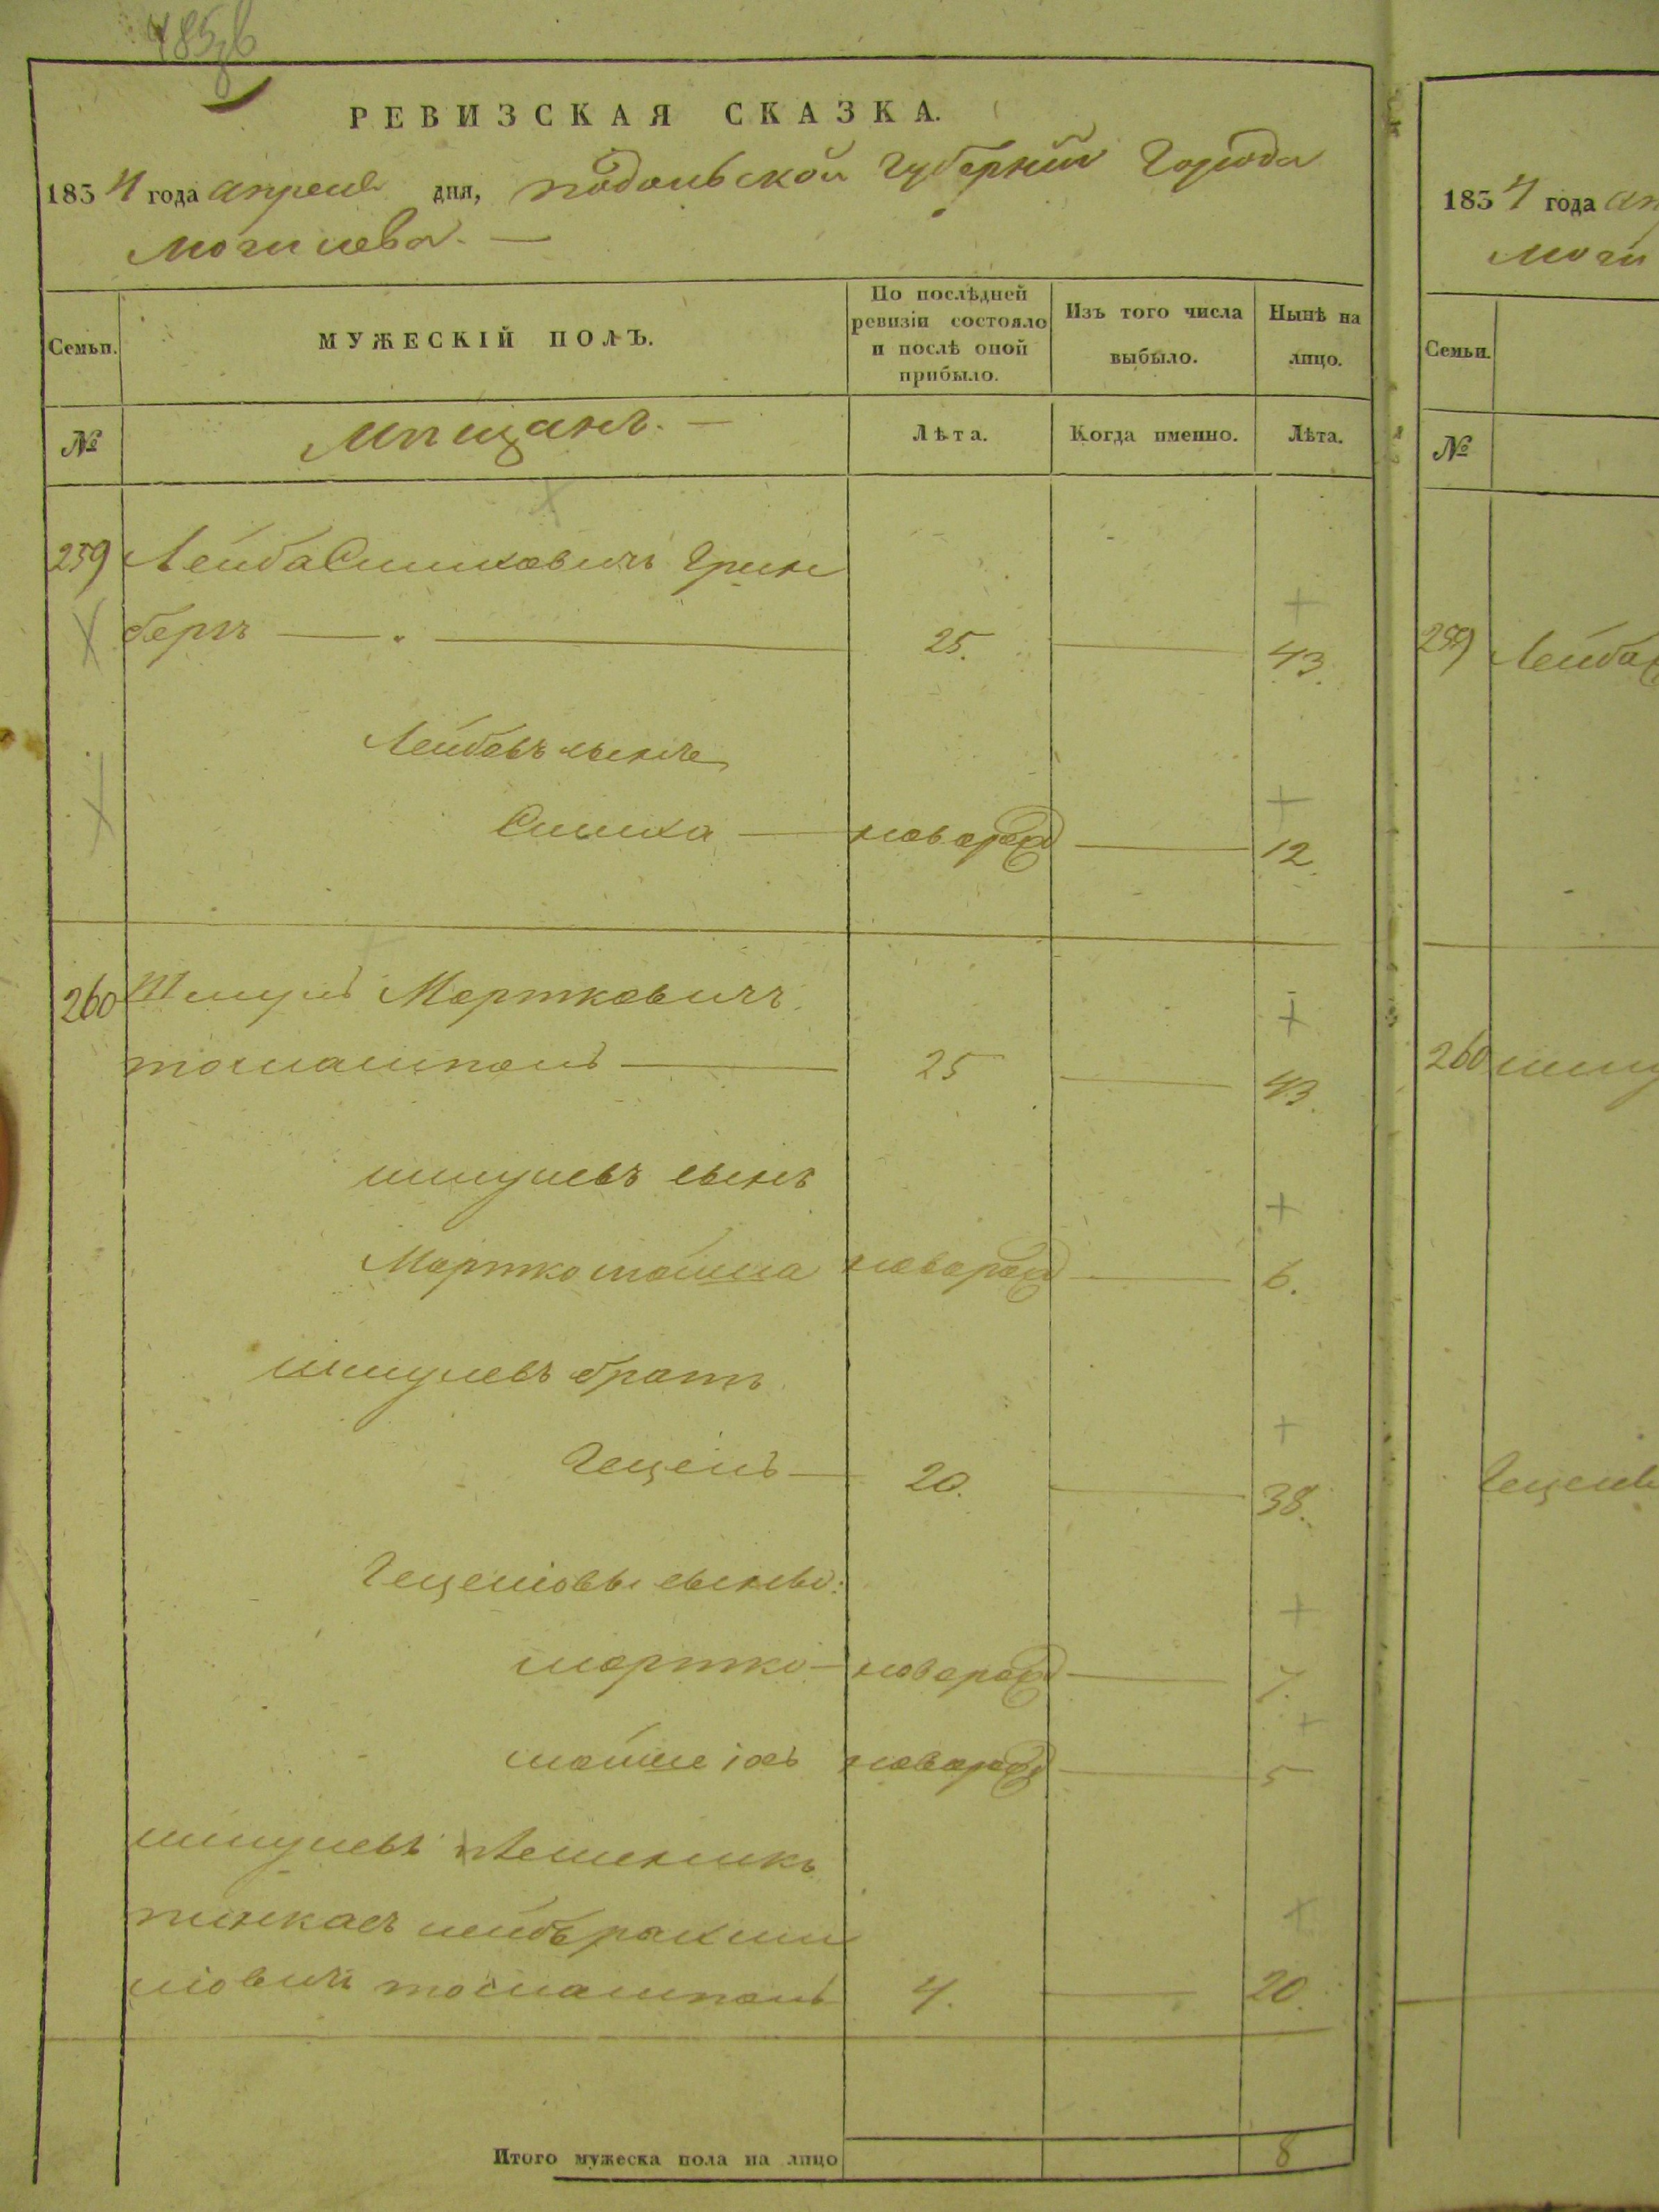 РЕВИЗСКАЯ СКАЗКА.
1834 года апреля дня, подольской губернии Города
Могилева. —
Семьи.
МУЖЕСКІЙ ПОЛЪ.
По послѣдней ревизіи состояло и послѣ оной прибыло.
Изъ того числа выбыло.
Нынѣ на лицо.
№
Мѣщанъ. —
Лѣта.
Когда именно.
Лѣта.
259 Лейба Симховичъ Грин
бергъ — 25. — 43.
Лейбовъ сынъ
Симха — новорожд — 12.
260 Шмуль Мортковичъ
25 — 43.
шмулевъ сынъ
Мортко мойша новорожд — 6.
шмулевъ братъ
Гецель — 20. — 38.
Гецелiовы сыновья:
мортко — новорожд — 7.
мойше новорожд — 5
шмулевъ племенникъ
пинкасъ лейбъ рахми
лiовичъ 4. — 20.
Итого мужеска пола на лицо 8
1834 года ап
Моги
Семьи.
№
259 Лейба
260 шму
Гецель